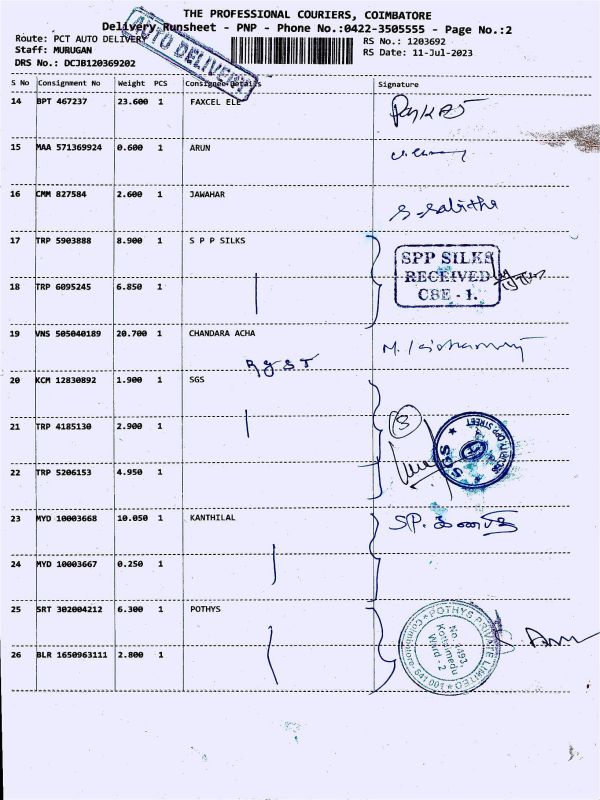 THE PROFESSIONAL COURIERS, COIMBATORE
Delivery Runsheet - PNP - Phone No.:0422-3505555 - Page No.:2
Route: PCT AUTO DELIVERY
AUTO DELIVERY
RS No.: 1203692
Staff: MURUGAN
RS Date: 11-Jul-2023
DRS No.: DCJB120369202
S No Consignment No Weight PCS Consignee Details Signature
14 BPT 467237 23.600 1 FAXCEL ELE
15 MAA 571369924 0.600 1 ARUN
16 CMM 827584 2.600 1 JAWAHAR
S-Sabitha
17 TRP 5903888 8.900 1 S P P SILKS
SPP SILKS
RECEIVED
CBE - 1.
18 TRP 6095245 6.850 1
19 VNS 505040189 20.700 1 CHANDARA ACHA
20 KCM 12830892 1.900 1 SGS
3
21 TRP 4185130 2.900 1
SGS
22 TRP 5206153 4.950 1
23 MYD 10003668 10.050 1 KANTHILAL
24 MYD 10003667 0.250 1
25 SRT 302004212 6.300 1 POTHYS
POTHYS PRIVATE LIMITED
No. 1493,
Kottaimedu
Ward - 2
Coimbatore-641 001
26 BLR 1650963111 2.800 1